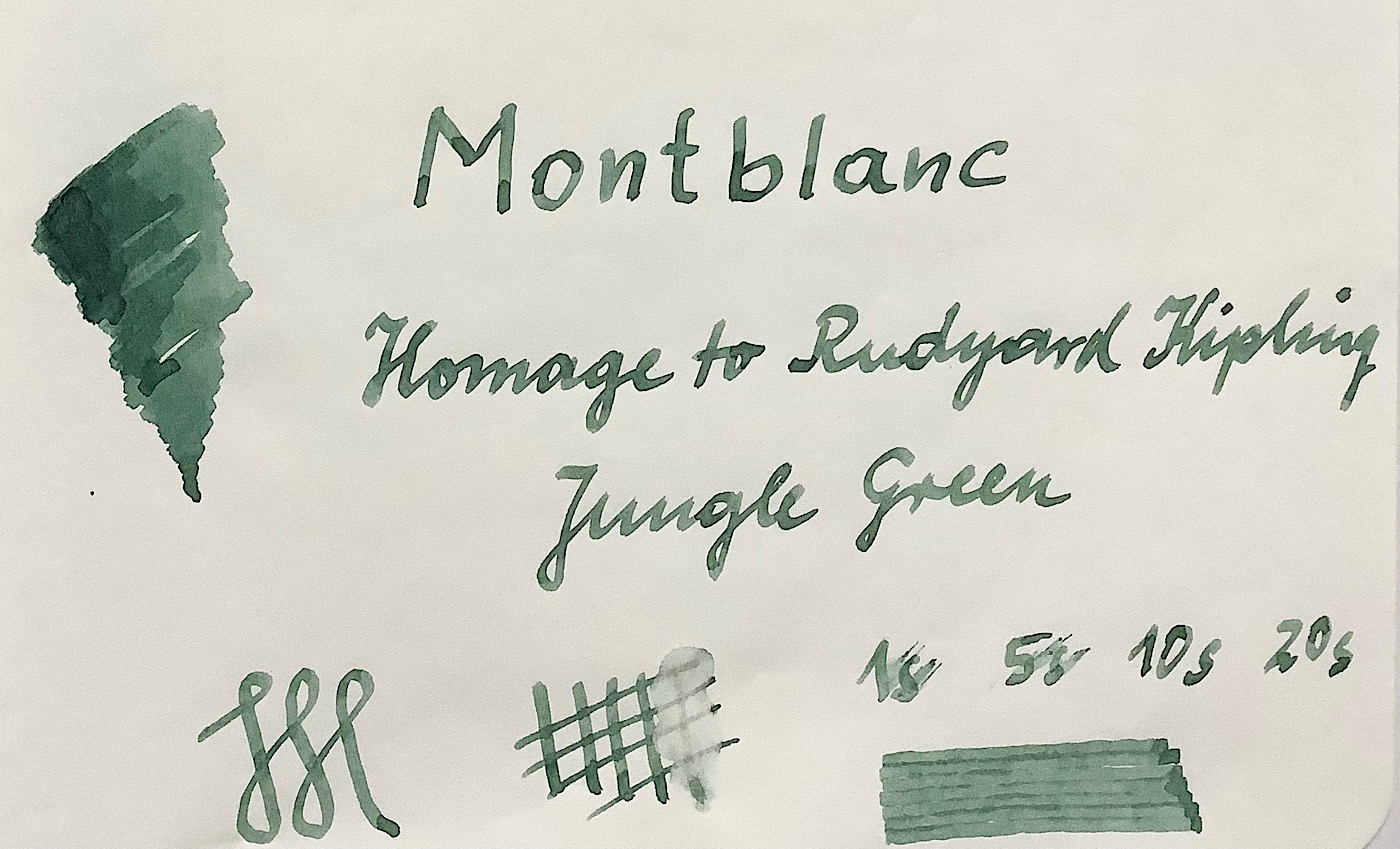 Montblanc
Homage to Rudyard Kipling
Jungle Green
1s 5s 10s 20s